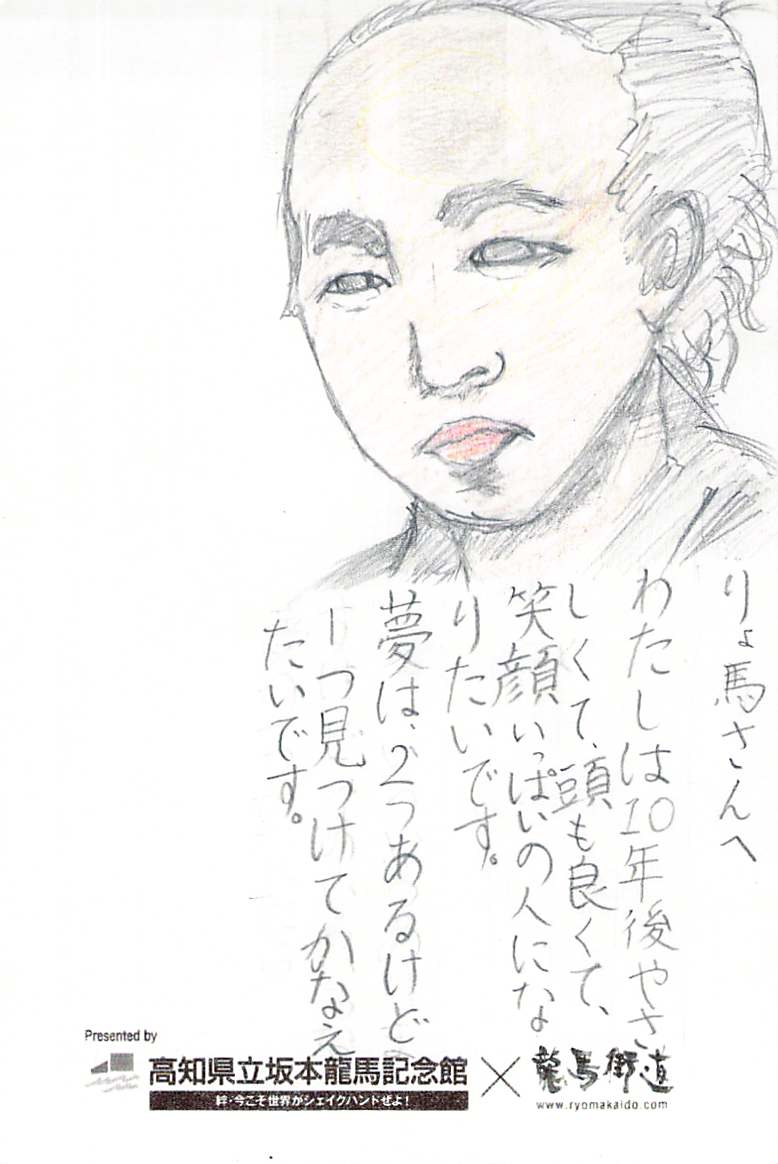 りょ馬さんへ
わたしは10年後やさ
しくて、頭も良くて、
笑顔いっぱいの人にな
りたいです。
夢は、2つあるけど
一つ見つけてかなえ
たいです。
Presented by
高知県立坂本龍馬記念館
絆・今こそ世界がシェイクハンドぜよ!
×
龍馬街道
www.ryomakaido.com